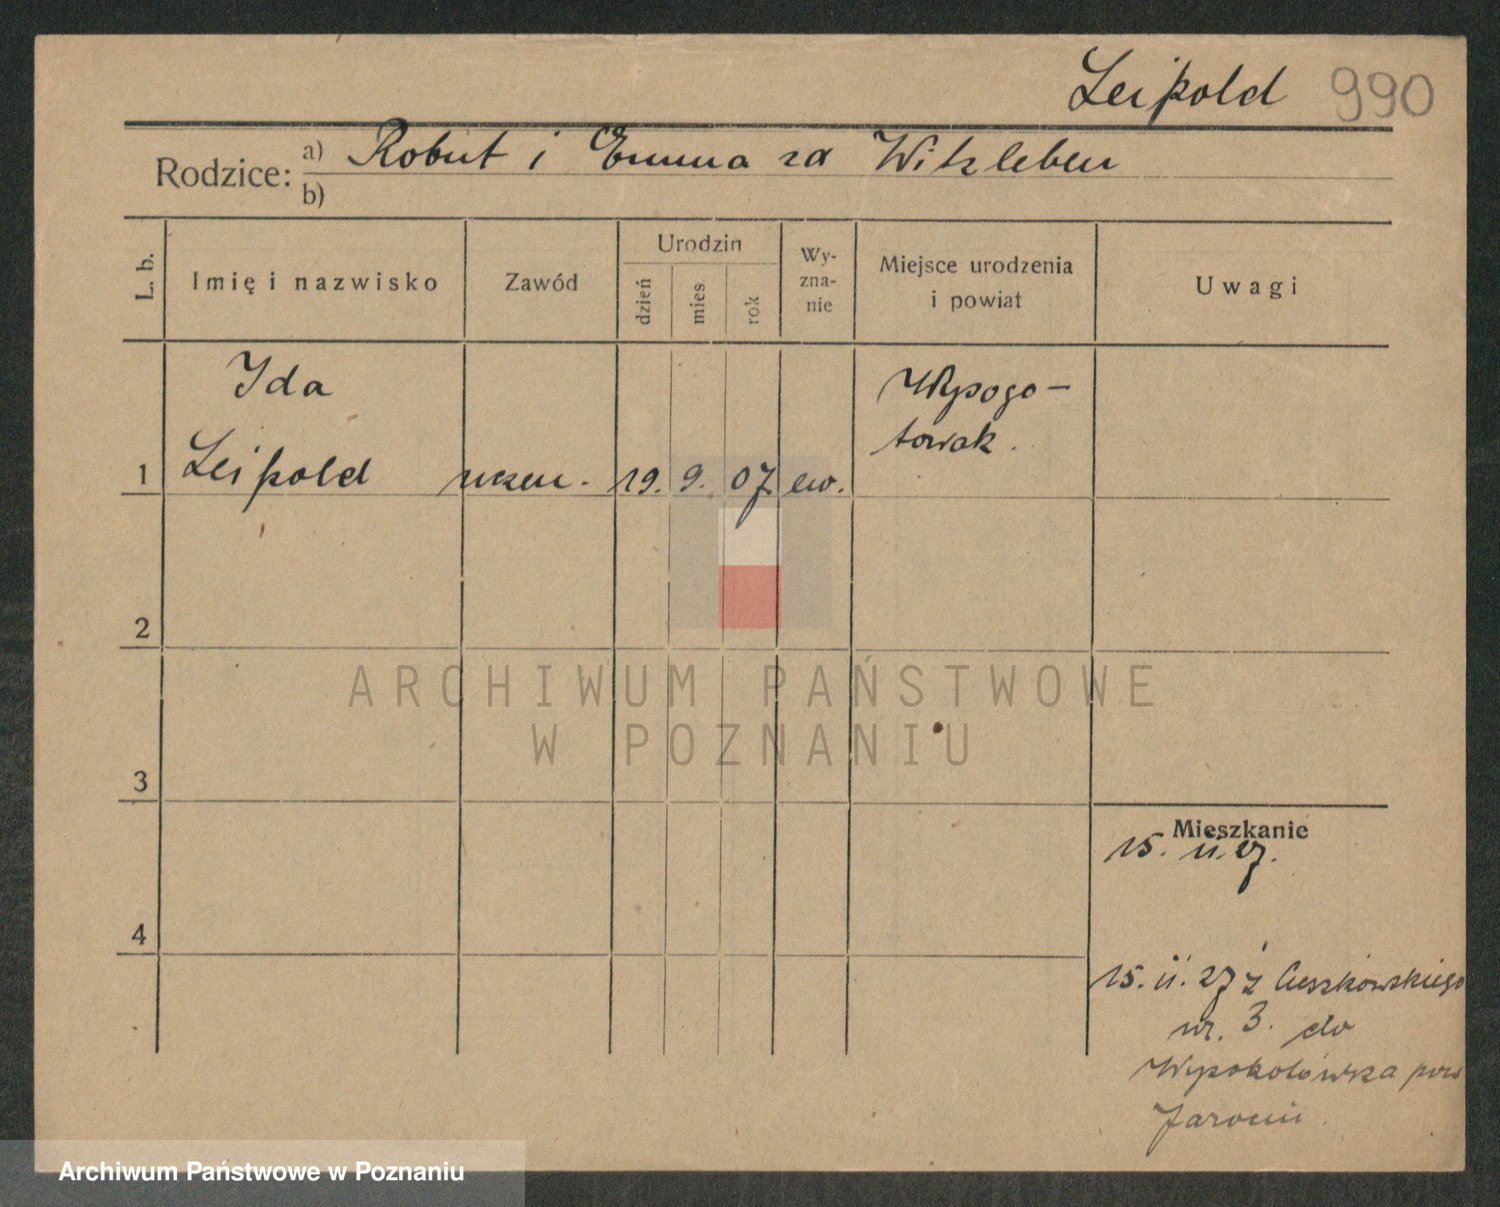 Leipold 990
Rodzice: a) Robert i Emma zd Witzleben
b)
L. b.
Imię i nazwisko
Zawód
Urodzin
dzień
mies
rok
Wy-
zna-
nie
Miejsce urodzenia
i powiat
Uwagi
Ida
Wypogo-
towak.
1 Leipold uczen. 19. 9. 07 ew.
2
ARCHIWUM PAŃSTWOWE
W POZNANIU
3
Mieszkanie
15. 11. 27.
4
15. 11. 27 z Cieszkowskiego
nr. 3. do
pow
Jarocin
Archiwum Państwowe w Poznaniu